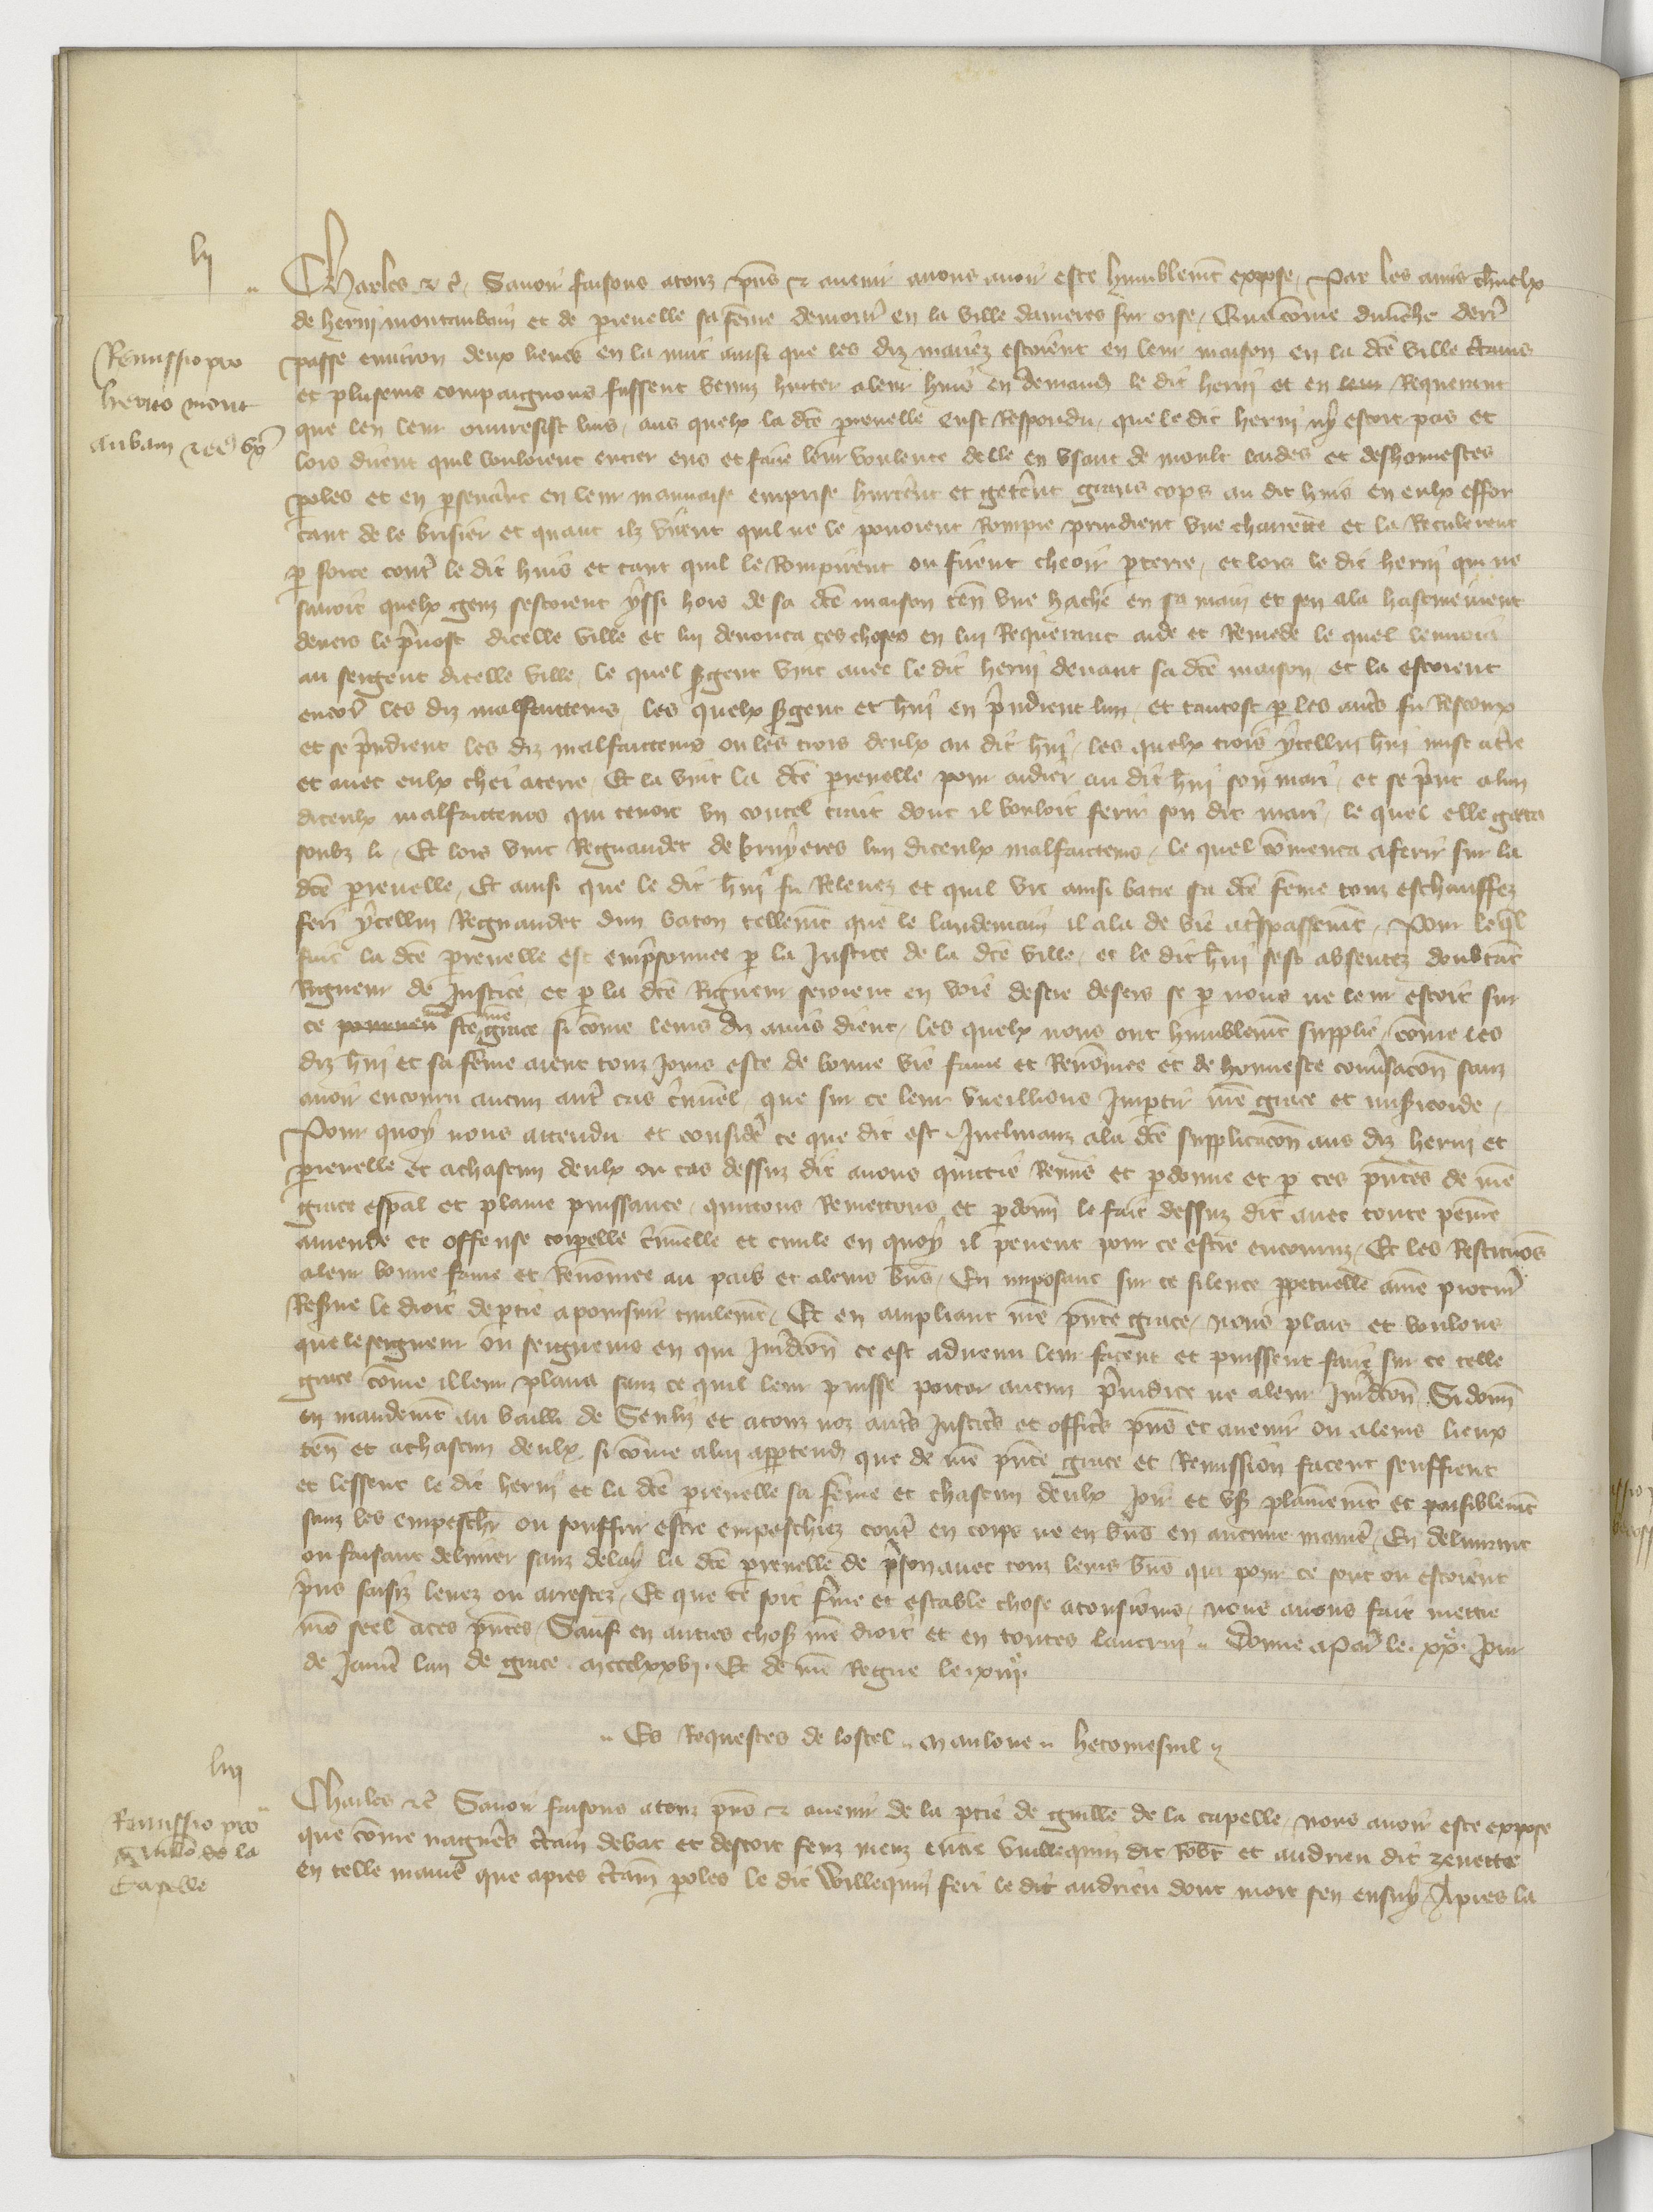 lij
Charles etc̃. Sauoir faisons a touz p̃ns et auenir auons auoir este humblem̃t expose, Par les amis charnelx
de henri montaubain et de perenelle sa fẽme demour̃ en la ville dasnieres sur oise, Que cõme dimẽche derr̃
Remissio pro
passe enuiron deux heures en la nuit ainsi que les diz mariez estoient en leur maison en la dc̃e ville c̃tains
henrico mont
et pluseurs compaignons fussent venuz hurter a leur huis en demand̃ le dit henri et en leur Requerant
aubain et eiꝰ vx̃
que len leur ouuresist luis, aus quelx la dc̃e perenelle eust Respondu, que le dit henri ny estoit pas et
lors dirent quil vouloient entrer ens et faire leur voulente delle en vsant de moult laides et deshonnestes
poles et en perseuer̃nt en leur mauuaise emprise hurter̃nt et geter̃nt grans cops au dit huis en eulx effor
cant de le brisier et quant ilz virent quil ne le pouoient Rompre prindrent vne charrette et la Reculerent
p force contr̃ le dit huis et tant quil le Rompirent ou firent cheoir p terre, et lors le dit henri qui ne
sauoit quelx genz sestoient yssi hors de sa dc̃e maison ten̄ vne hache en sa main et sen ala hastiuement
deuers le p̃uost dicelle ville et lui denonca ces choses en lui Requerant aide et Remede le quel lenuoia
au sergent dicelle ville, le quel sergent vint auec le dit henri deuant sa dc̃e maison, et la estoient
encor̃ les diz malfaitteurs, les quelx sergent et h̃ri en p̃ndrent lun, et tantost p les autr̃s fu Rescoux
et se p̃ndrent les diz malfaicteurs ou les trois deulx au dit h̃ri, les quelx trois ycellui h̃ri mist a tr̃e
et auec eulx chei a terre, Et la vint la dc̃e perenelle pour aidier au dit h̃ri son mari, et se p̃nt a lun
diceulx malfaitteurs qui tenoit vn coutel trait dont il vouloit ferir son dit mari, le quel elle getta
soubz li, Et lors vint Regnaudet de bruyeres lun diceulx malfaicteurs, le quel cõmenca a ferir sur la
dc̃e perenelle, Et ainsi que le dit h̃ri fu Releuez et quil vit ainsi batre sa dc̃e fẽme touz eschauffez
feri ycellui Regnaudet dun baton tellem̃t que le landemain il ala de vie a tr̃spassem̃t, Pour leq̃l
fait la dc̃e perenelle est emp̃sonnee p la Justice de la dc̃e ville, et le dit h̃ri sest absentez doubtãt
Rigueur de Justice, et p la dc̃e Rigueur seroient en voie destre desers se p nous ne leur estoit sur
ce nr̃e grace, si cõme leurs diz amis dient, les quelx nous ont humblem̃t supplie, cõme les
diz h̃ri et sa fẽme aient touz jours este de bonne vie fame et Renõmee et de honneste conũsac̃on sanz
auoir encouru aucun autr̃ cas c̃minel, que sur ce leur vueillions Impartir nr̃e grace et misericorde,
Pour quoy nous attendu et consider̃ ce que dit est Inclinanz a la dc̃e supplicac̃on aus diz henri et
perenelle et a chascun deulx ou cas dessuz dit auons quittie Remis et pardonne et p ces p̃ntes de nr̃e
grace esp̃al et plaine puissance, quittons Remettons et pardonñ le fait dessuz dit auec toute peinne
amende et offense corporelle c̃minelle et ciuile en quoy il peuent pour ce estre encouruz, Et les Restituõs
a leur bonne fame et Renõmee au pais et a leurs bñs, En imposant sur ce silence ppetuelle a nr̃e procur̃
Reserue le droit de partie a poursuir ciuilem̃t, Et en ampliant nr̃e p̃nte grace, nous plaist et voulons
que le seigneur ou seigneurs en qui jur̃dicc̃on ce est aduenu leur facent et puissent faire sur ce telle
grace cõme il leur plaira sanz ce quil leur puisse porter aucun p̃iudice ne a leur jur̃dicc̃on Si donñ
en mandem̃t au bailli de Senliz et a touz noz autr̃s Justic̃s et offic̃s p̃ns et auenir ou a leurs lieux
ten̄ et a chascun deulx, si cõme a lui apptendr̃ que de nr̃e p̃nte grace et Remission facent seuffrent
et lessent le dit henri et la dc̃e perenelle sa fẽme et chascun deulx joir et vser plainem̃t et paisiblem̃t
sanz les empeschr̃ ou souffrir estre empeschiez contr̃ en corps ne en bñs en aucune manier̃, En deliurant
ou faisant deliurer sanz delay la dc̃e perenelle de p̃son auec touz leurs bñs qui pour ce sont ou estoient
p̃ns saisiz leuez ou arrestez, Et que ce soit ferme et estable chose a tousiours, nous auons fait mettre
nr̃e seel a ces p̃ntes, Sauf en autres choses nr̃e droit et en toutes lautrui. Donne a Par̃ le .xxe. jour
de januier lan de grace .mccclxxvj. Et de nr̃e Regne le .xiije.
Es Requestes de lostel. Manloue. hetomesnil
liij
Charles etc̃ Sauoir faisons a touz p̃ns et auenir de la partie de guillẽ de la capelle, nous auoir este expose
Remissio pro
que cõme nagueres c̃tain debat et descort feuz meuz entre Willequin dit Rob̃t et andrieu dit zenette
Guillo de la
en telle manier̃ que apres c̃taines poles le dit Willequin feri le dit andrieu dont mort sen ensuy, Apres la
Capelle